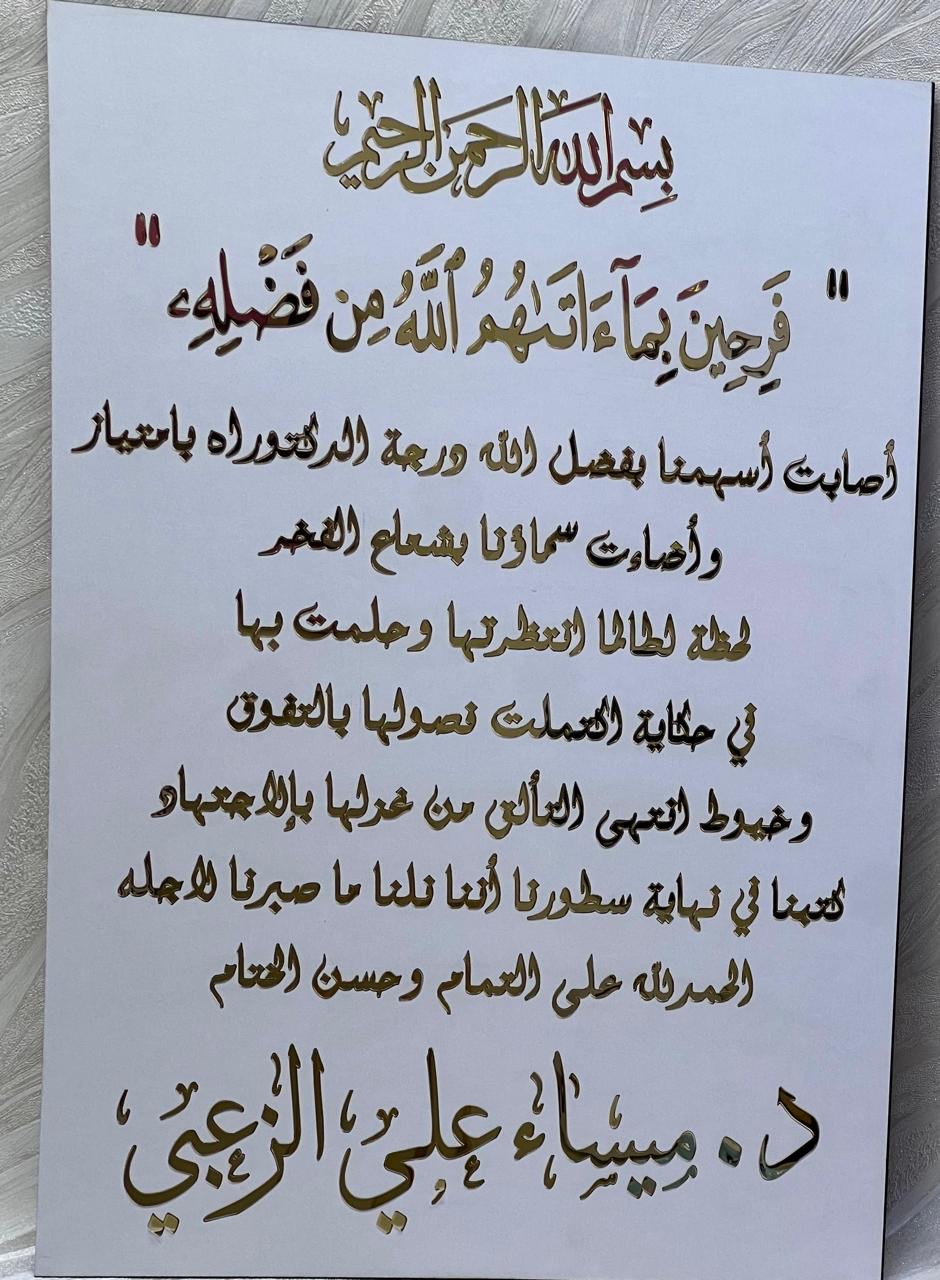 بِسْمِ اللهِ الرَّحْمَنِ الرَّحِيمِ
" فَرِحِينَ بِمَآ ءَاتَىٰهُمُ ٱللَّهُ مِن فَضْلِهِۦ "
أصابت أسهمنا بفضل الله درجة الدكتوراه بامتياز
وأضاءت سماؤنا بشعاع الفخر
لحظة لطالما انتظرتها وحلمت بها
في حكاية اكتملت فصولها بالتفوق
وخيوط انتهى التألق من غزلها بإلاجتهاد
كتبنا في نهاية سطورنا أننا نلنا ما صبرنا لاجله
الحمدلله على التمام وحسن الختام
د. ميساء علي الزعبي